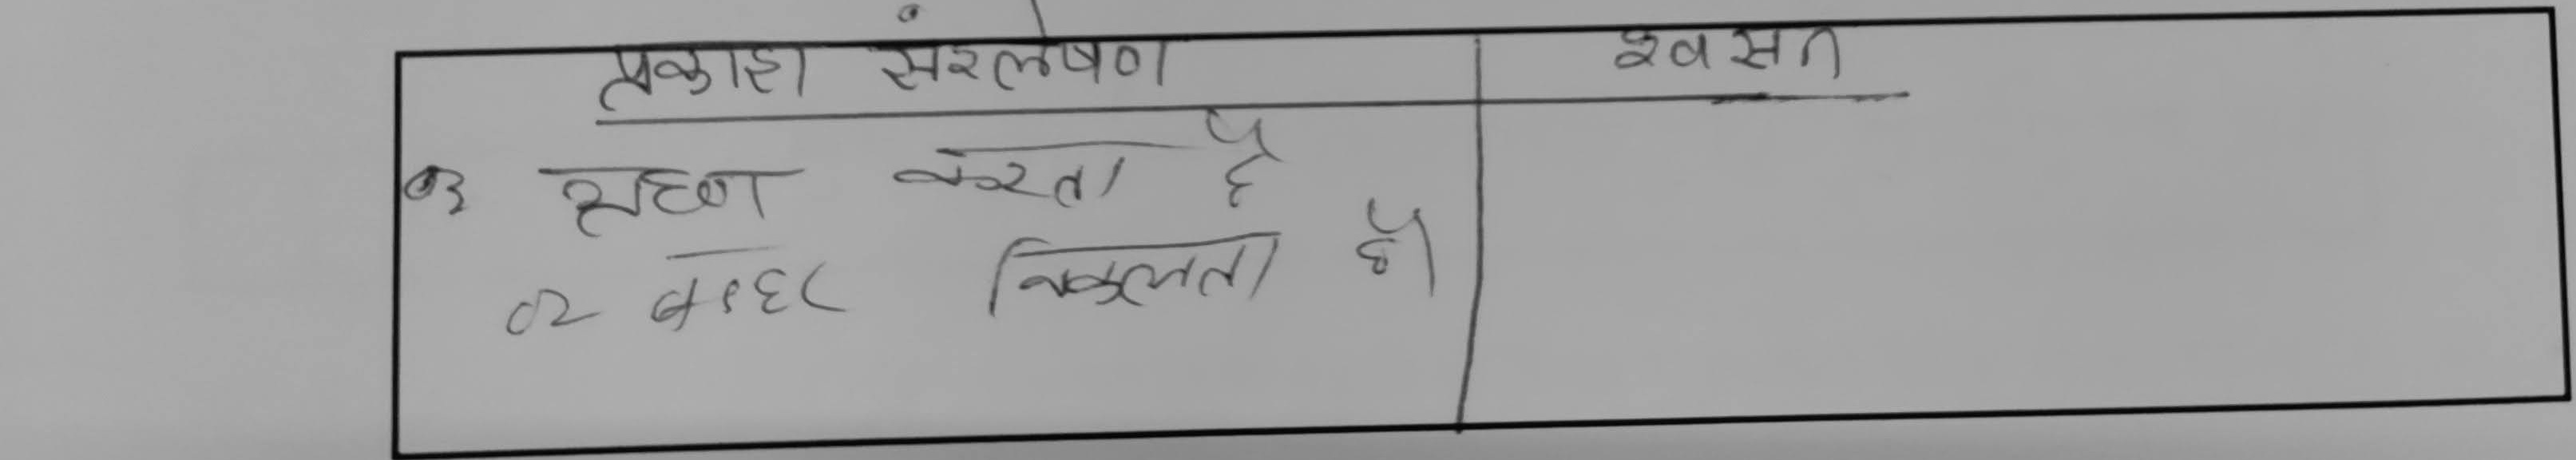 प्रकाश संश्लेषण श्वसन
ग्रहण करता है
02 बाहर निकलता है।